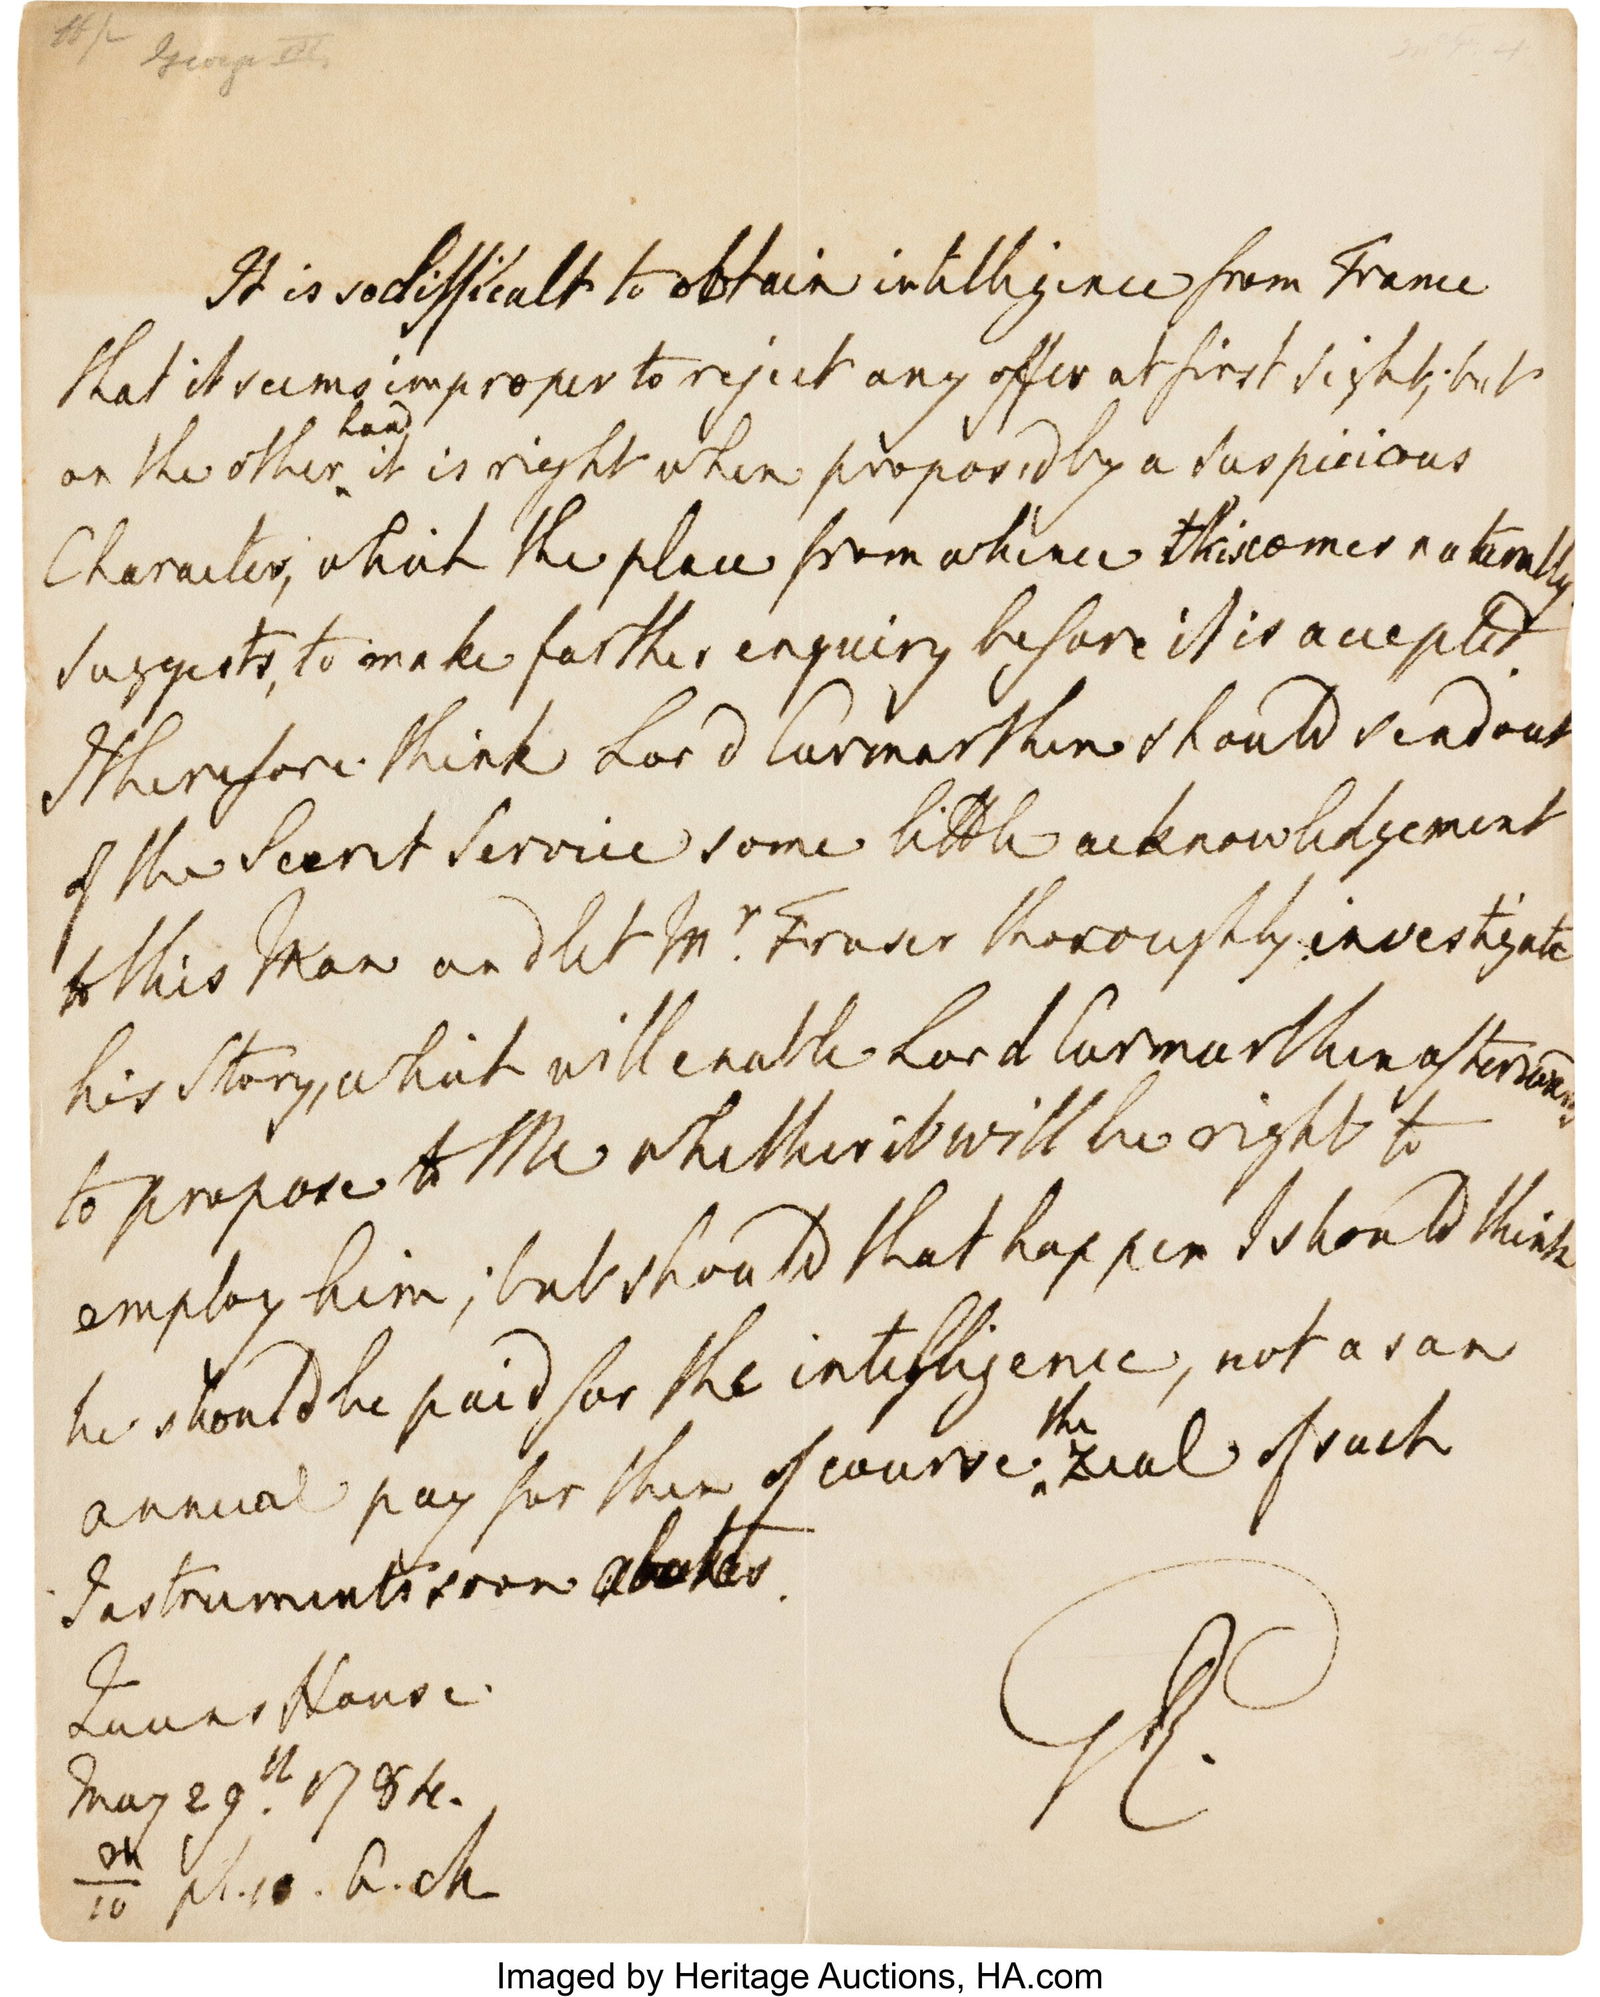 George III
It is so difficult to obtain intelligence from France
that it seems improper to reject any offer at first sight; but
on the other hand it is right when proposed by a suspicious
Character, which the place from whence this comes naturally
suggests, to make farther enquiry before it is accepted.
I therefore think Lord Carmarthen should send out
of the Secret Service some little acknowledgement
to this Man and let Mr. Fraser thoroughly investigate
his Story, which will enable Lord Carmarthen afterwards
to propose to Me whether it will be right to
employ him; but should that happen I should think
he should be paid for the intelligence, not as an
annual pay for then of course the zeal of such
Instruments soon abates.
Queens House
May 29th. 1784.
GR.
Imaged by Heritage Auctions, HA.com